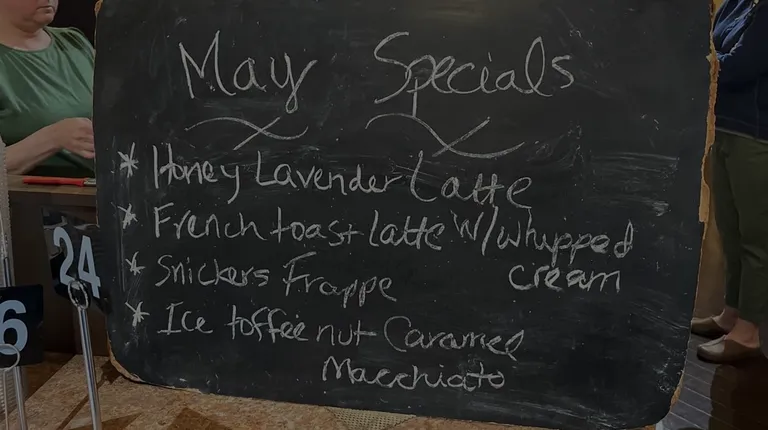 May Specials
* Honey Lavender Latte
* French toast latte w/whipped
cream
* Snickers Frappe
* Ice toffee nut Caramel
Macchiato
24
6